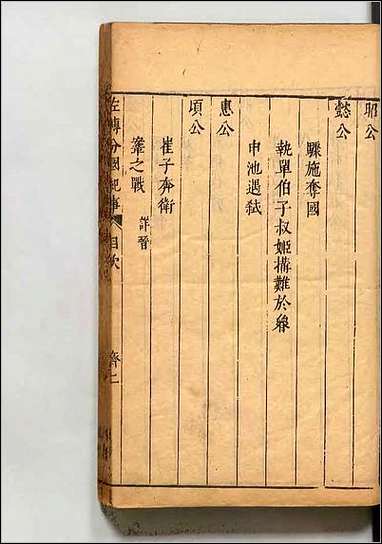 昭公
懿公
驟施奪國
執單伯子叔姬搆難於魯
申池遇弑
惠公
頃公
崔子奔衛
鞌之戰 詳晉
左傳分國紀事 目次 齊二